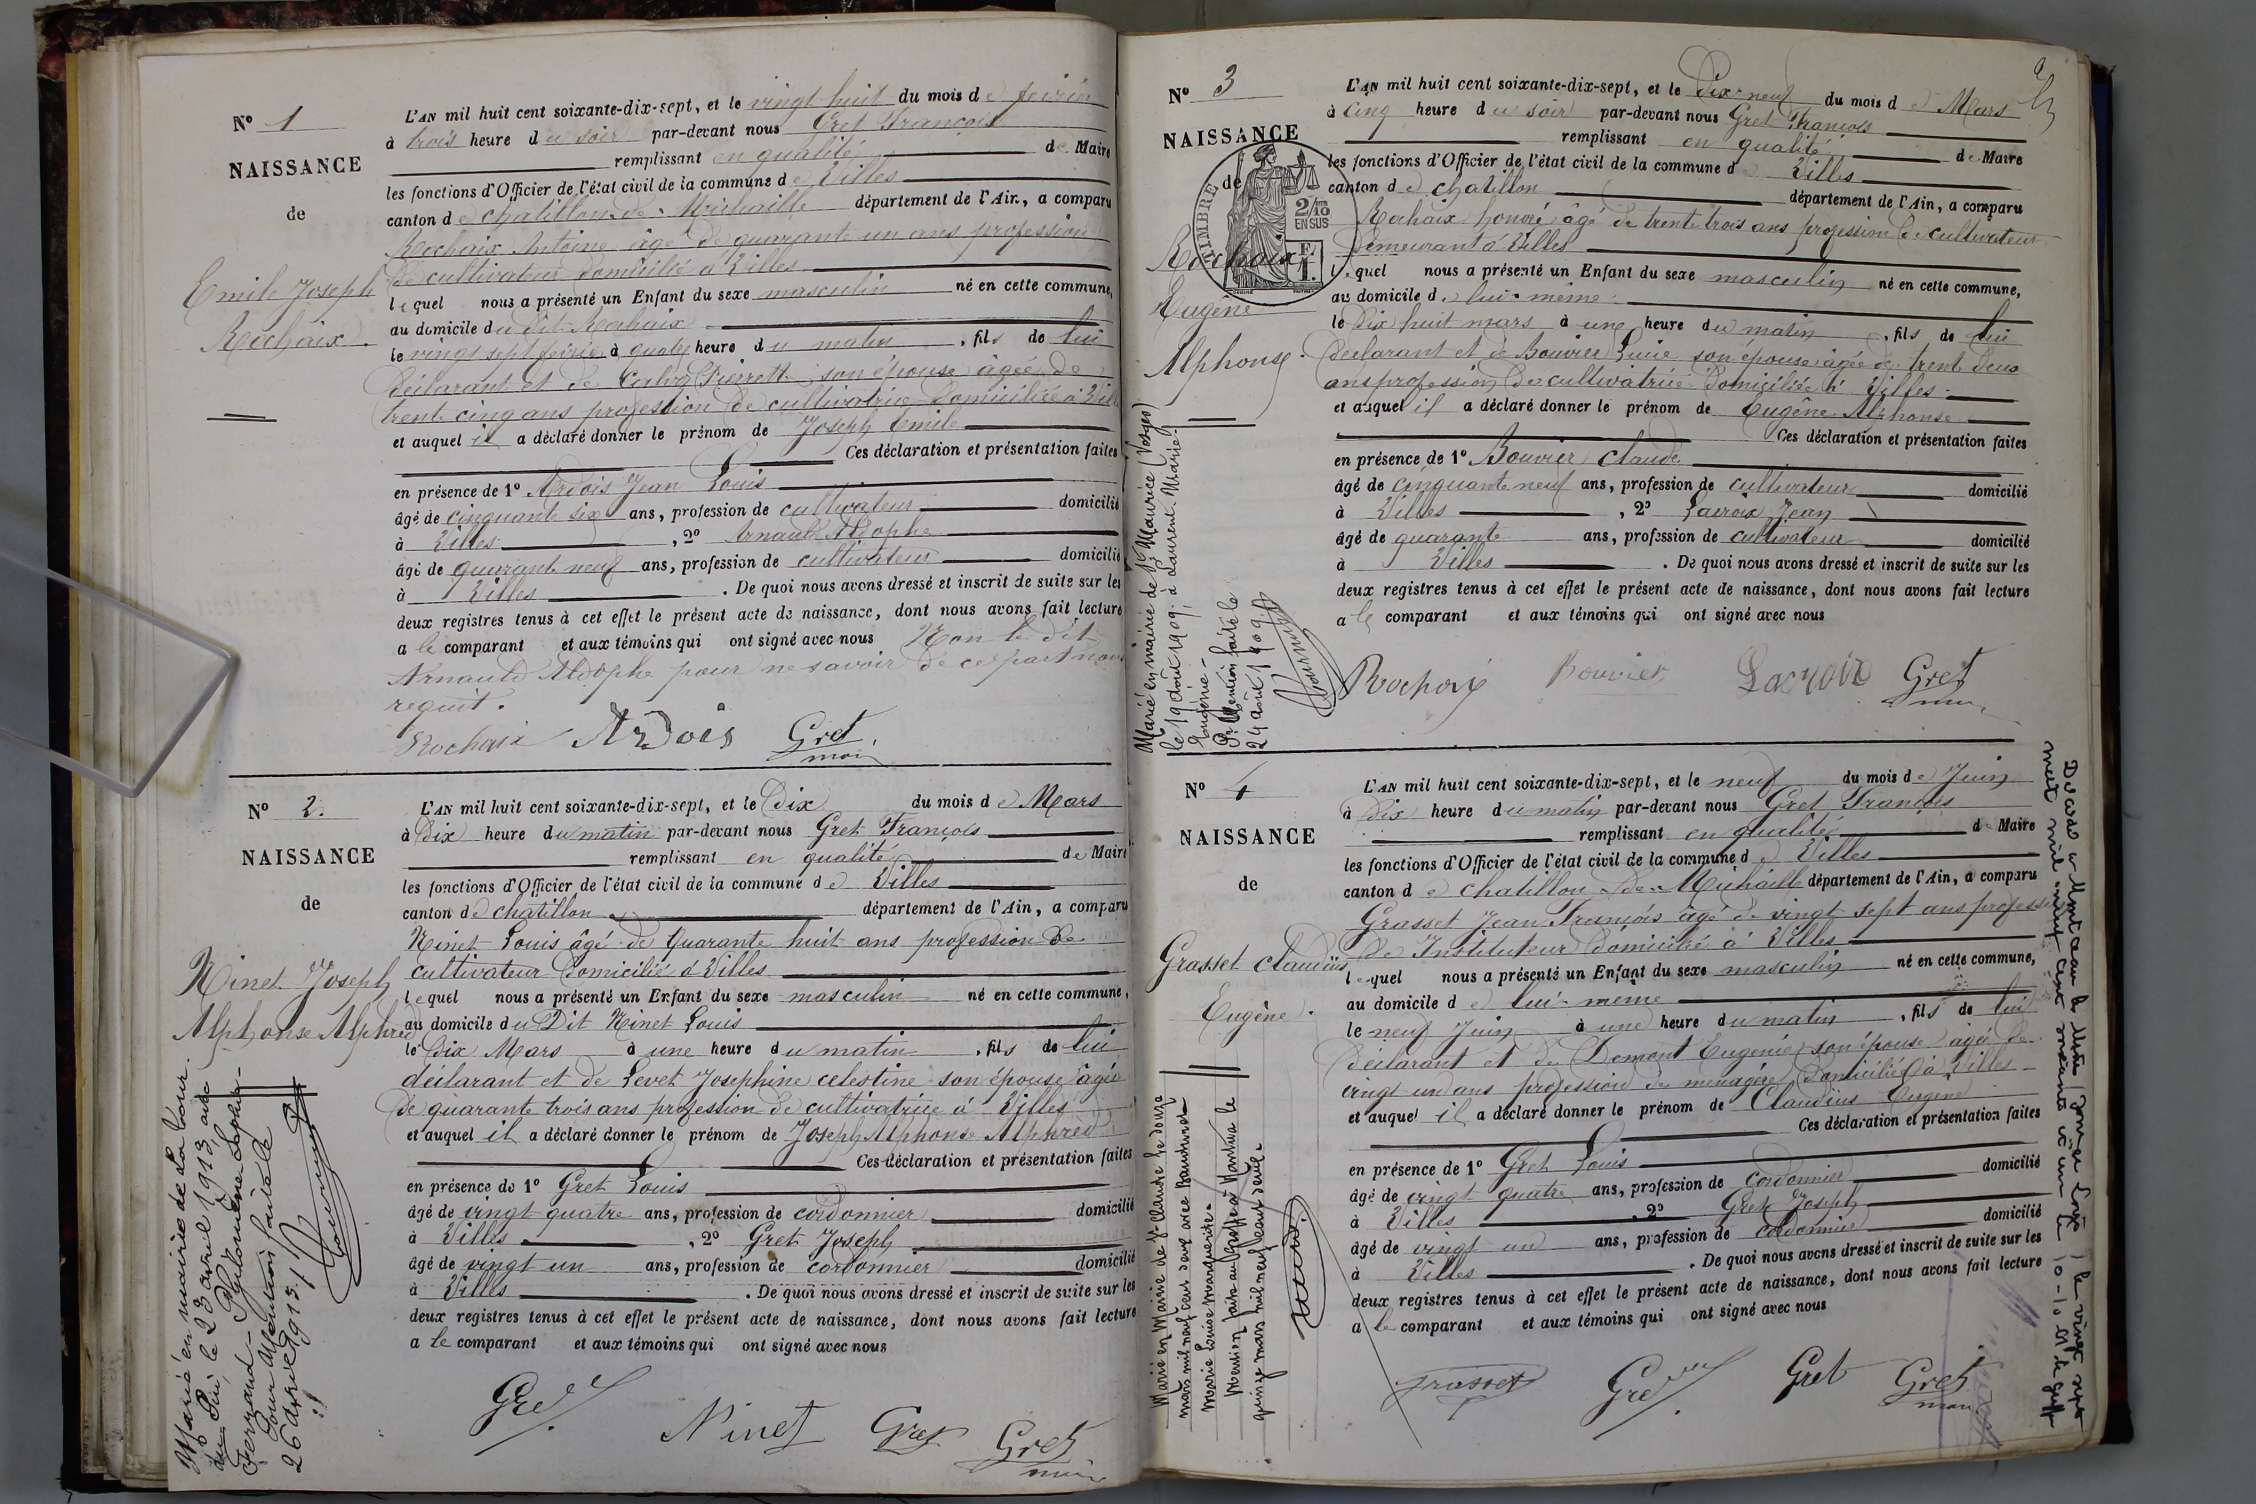 N° 1
NAISSANCE
de
Emile Joseph
Rochaix.
L'AN mil huit cent soixante-dix-sept, et le vingt huit du mois de février
à trois heure du soir par-devant nous Gret François
remplissant en qualité de Maire
les fonctions d'Officier de l'état civil de la commune de Villes
canton de chatillon de Michaille département de l'Ain, a comparu
Rochaix Antoine âgé de quarante un ans profession
de cultivateur domicilié à Villes
lequel nous a présenté un Enfant du sexe masculin né en cette commune,
au domicile du dit Rochaix
le vingt sept février à quatre heure du matin, fils de lui
déclarant et de Pierrette son épouse âgée de
trente cinq ans profession de cultivatrice domiciliée à Villes
et auquel il a déclaré donner le prénom de Joseph Emile
Ces déclaration et présentation faites
en présence de 1° Ardois Jean Louis
âgé de cinquante six ans, profession de cultivateur domicilié
à Villes, 2° Arnauld Adophe
âgé de quarante neuf ans, profession de cultivateur domicilié
à Villes. De quoi nous avons dressé et inscrit de suite sur les
deux registres tenus à cet effet le présent acte de naissance, dont nous avons fait lecture
a le comparant et aux témoins qui ont signé avec nous Non le dit
Arnauld Adophe pour ne savoir de ce part nous
requit.
Rochaix ARDois Gret
maire
N° 2.
NAISSANCE
de
Ninet Joseph
Alphonse Alphred
L'AN mil huit cent soixante-dix-sept, et le Dix du mois de Mars
à Dix heure du matin par-devant nous Gret François
remplissant en qualité de Maire
les fonctions d'Officier de l'état civil de la commune de Villes
canton de chatillon département de l'Ain, a comparu
Ninet Louis âgé de Quarante huit ans profession de
cultivateur domicilié à Villes
lequel nous a présenté un Enfant du sexe masculin né en cette commune,
au domicile du Dit Ninet Louis
le Dix Mars à une heure du matin, fils de lui
déclarant et de Levet Josephine celestine son épouse âgée
de quarante trois ans profession de cultivatrice à Villes
et auquel il a déclaré donner le prénom de Joseph Alphonse Alphred
Ces déclaration et présentation faites
en présence de 1° Gret Louis
âgé de vingt quatre ans, profession de cordonnier domicilié
à Villes, 2° Gret Joseph
âgé de vingt un ans, profession de cordonnier domicilié
à Villes. De quoi nous avons dressé et inscrit de suite sur les
deux registres tenus à cet effet le présent acte de naissance, dont nous avons fait lecture
a le comparant et aux témoins qui ont signé avec nous
Gret
Ninet Gret Gret
maire
Marié en mairie de La Tour
du Pin, le 23 avril 1913 avec
Ferrand Philomène Sophie.
Pour Mention faite le
26 avril 1913
N° 3
NAISSANCE
de
Rochaix
Eugène
Alphonse
TIMBRE
2/10
EN SUS
F.
1.
L'AN mil huit cent soixante-dix-sept, et le Dix-neuf du mois de Mars
à cinq heure du soir par-devant nous Gret François
remplissant en qualité de Maire
les fonctions d'Officier de l'état civil de la commune de Villes
canton de chatillon département de l'Ain, a comparu
Rochaix honoré âgé de trente trois ans profession de cultivateur
demeurant à Villes
lequel nous a présenté un Enfant du sexe masculin né en cette commune,
au domicile de lui-même
le dix huit mars à une heure du matin, fils de lui
déclarant et de Bouvier Lucie son épouse âgée de trente deux
ans profession de cultivatrice domiciliée à Villes
et auquel il a déclaré donner le prénom de Eugène Alphonse
Ces déclaration et présentation faites
en présence de 1° Bouvier Claude
âgé de cinquante neuf ans, profession de cultivateur domicilié
à Villes, 2° Lacroix Jean
âgé de quarante ans, profession de cultivateur domicilié
à Villes. De quoi nous avons dressé et inscrit de suite sur les
deux registres tenus à cet effet le présent acte de naissance, dont nous avons fait lecture
a le comparant et aux témoins qui ont signé avec nous
Rochaix Bouvier Lacroix Gret
maire
Marié en mairie de St Maurice (Vosges)
le 19 août 1909, à Laurent Marie
Eugénie.
Pr Mention faite le
24 août 1909
N° 4
NAISSANCE
de
Grasset Claudius
Eugène.
L'AN mil huit cent soixante-dix-sept, et le neuf du mois de Juin
à dix heure du matin par-devant nous Gret François
remplissant en qualité de Maire
les fonctions d'Officier de l'état civil de la commune de Villes
canton de chatillon de Michaille département de l'Ain, a comparu
Grasset Jean François âgé de vingt sept ans profession
de Instituteur domicilié à Villes
lequel nous a présenté un Enfant du sexe masculin né en cette commune,
au domicile de lui-même
le neuf Juin à une heure du matin, fils de lui
déclarant et de Domont Eugénie son épouse âgée de
vingt un ans profession de menagère domiciliée à Villes
et auquel il a déclaré donner le prénom de Claudius Eugène
Ces déclaration et présentation faites
en présence de 1° Gret Louis
âgé de vingt quatre ans, profession de cordonnier domicilié
à Villes, 2° Gret Joseph
âgé de vingt un ans, profession de cordonnier domicilié
à Villes. De quoi nous avons dressé et inscrit de suite sur les
deux registres tenus à cet effet le présent acte de naissance, dont nous avons fait lecture
a le comparant et aux témoins qui ont signé avec nous
Grasset Gret Gret Gret
maire
Marié en Mairie de St-Claude le douze
mars mil neuf cent deux avec
Marie Louise Marguerite.
Mention faite au Greffe à Nantua le
quinze mars mil neuf cent deux.
Décédé à le vingt sept
mil neuf cent soixante et un le 10-10 61 le greffier